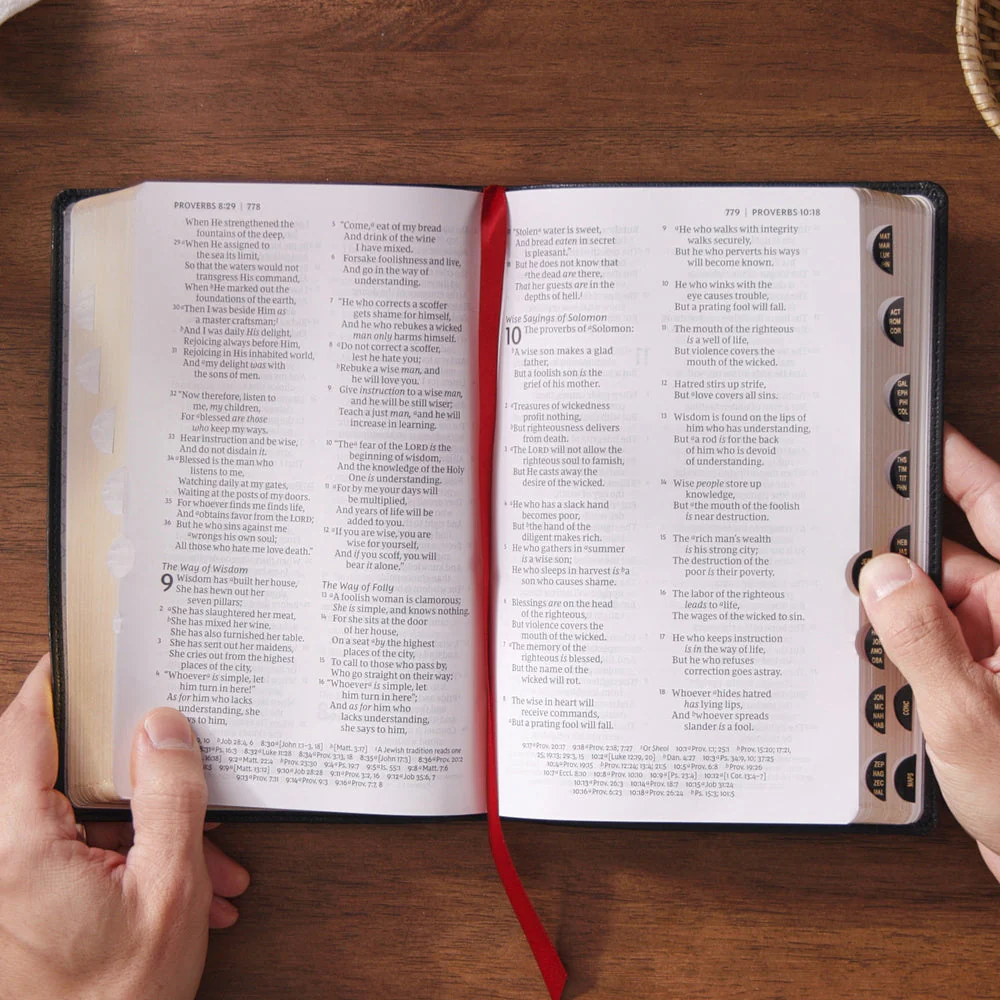 PROVERBS 8:29 | 778
When He strengthened the
fountains of the deep,
29 aWhen He assigned to
the sea its limit,
So that the waters would not
transgress His command,
When bHe marked out the
foundations of the earth,
30 aThen I was beside Him as
a master craftsman;1
bAnd I was daily His delight,
Rejoicing always before Him,
31 Rejoicing in His inhabited world,
And amy delight was with
the sons of men.
32 "Now therefore, listen to
me, my children,
For ablessed are those
who keep my ways.
33 Hear instruction and be wise,
And do not disdain it.
34 aBlessed is the man who
listens to me,
Watching daily at my gates,
Waiting at the posts of my doors.
35 For whoever finds me finds life,
And aobtains favor from the LORD;
36 But he who sins against me
awrongs his own soul;
All those who hate me love death."
The Way of Wisdom
9 Wisdom has abuilt her house,
She has hewn out her
seven pillars;
2 aShe has slaughtered her meat,
bShe has mixed her wine,
She has also furnished her table.
3 She has sent out her maidens,
She cries out from the highest
places of the city,
4 "Whoever is simple, let
him turn in here!"
As for him who lacks
understanding, she
ays to him,
5 "Come, aeat of my bread
And drink of the wine
I have mixed.
6 Forsake foolishness and live,
And go in the way of
understanding.
7 "He who corrects a scoffer
gets shame for himself,
And he who rebukes a wicked
man only harms himself.
8 aDo not correct a scoffer,
lest he hate you;
bRebuke a wise man, and
he will love you.
9 Give instruction to a wise man,
and he will be still wiser;
Teach a just man, aand he will
increase in learning.
10 "The afear of the LORD is the
beginning of wisdom,
And the knowledge of the Holy
One is understanding.
11 aFor by me your days will
be multiplied,
And years of life will be
added to you.
12 aIf you are wise, you are
wise for yourself,
And if you scoff, you will
bear it alone."
The Way of Folly
13 aA foolish woman is clamorous;
She is simple, and knows nothing.
14 For she sits at the door
of her house,
On a seat aby the highest
places of the city,
15 To call to those who pass by,
Who go straight on their way:
16 "Whoever ais simple, let
him turn in here";
And as for him who
lacks understanding,
she says to him,
10 bJob 28:4, 6 8:30 a[John 1:1–3, 18] b[Matt. 3:17] 1A Jewish tradition reads one
8:31 aPs. 16:3 8:32 aLuke 11:28 8:34 aProv. 3:13, 18 8:35 a[John 17:3] 8:36 aProv. 20:2
9:2 aMatt. 22:4 bProv. 23:30 9:4 aPs. 19:7 9:5 aIs. 55:1 9:8 aMatt. 7:6
9:9 a[Matt. 13:12] 9:10 aJob 28:28 9:11 aProv. 3:2, 16 9:12 aJob 35:6, 7
9:13 aProv. 7:11 9:14 aProv. 9:3 9:16 aProv. 7:7, 8
779 | PROVERBS 10:18
"Stolen water is sweet,
And bread eaten in secret
is pleasant."
But he does not know that
athe dead are there,
That her guests are in the
depths of hell.1
Wise Sayings of Solomon
10 The proverbs of aSolomon:
bA wise son makes a glad
father,
But a foolish son is the
grief of his mother.
2 aTreasures of wickedness
profit nothing,
bBut righteousness delivers
from death.
3 aThe LORD will not allow the
righteous soul to famish,
But He casts away the
desire of the wicked.
4 aHe who has a slack hand
becomes poor,
But bthe hand of the
diligent makes rich.
5 He who gathers in asummer
is a wise son;
He who sleeps in harvest is ba
son who causes shame.
6 Blessings are on the head
of the righteous,
But violence covers the
mouth of the wicked.
7 aThe memory of the
righteous is blessed,
But the name of the
wicked will rot.
8 The wise in heart will
receive commands,
aBut a prating fool will fall.
9 aHe who walks with integrity
walks securely,
But he who perverts his ways
will become known.
10 He who winks with the
eye causes trouble,
But a prating fool will fall.
11 The mouth of the righteous
is a well of life,
But violence covers the
mouth of the wicked.
12 Hatred stirs up strife,
But alove covers all sins.
13 Wisdom is found on the lips of
him who has understanding,
But aa rod is for the back
of him who is devoid
of understanding.
14 Wise people store up
knowledge,
But athe mouth of the foolish
is near destruction.
15 The arich man's wealth
is his strong city;
The destruction of the
poor is their poverty.
16 The labor of the righteous
leads to alife,
The wages of the wicked to sin.
17 He who keeps instruction
is in the way of life,
But he who refuses
correction goes astray.
18 Whoever ahides hatred
has lying lips,
And bwhoever spreads
slander is a fool.
9:17 aProv. 20:17 9:18 aProv. 2:18; 7:27 1Or Sheol 10:1 aProv. 1:1; 25:1 bProv. 15:20; 17:21,
25; 19:13; 29:3, 15 10:2 a[Luke 12:19, 20] bDan. 4:27 10:3 aPs. 34:9, 10; 37:25
10:4 aProv. 19:15 bProv. 12:24; 13:4; 21:5 10:5 aProv. 6:8 bProv. 19:26
10:7 aEccl. 8:10 10:8 aProv. 10:10 10:9 a[Ps. 23:4] 10:12 a[1 Cor. 13:4–7]
10:13 aProv. 26:3 10:14 aProv. 18:7 10:15 aJob 31:24
10:16 aProv. 6:23 10:18 aProv. 26:24 bPs. 15:3; 101:5
MAT
MAR
LUK
JHN
ACT
ROM
COR
GAL
EPH
PHI
COL
THS
TIM
TIT
PHN
HEB
JAS
JOL
AMO
OBA
JON
MIC
NAH
HAB
CONC
ZEP
HAG
ZEC
MAL
MAPS